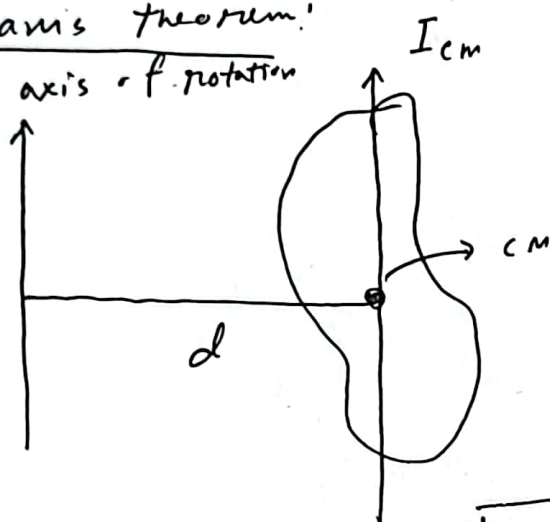 axis theorem:
I_cm
axis of rotation
cm
d